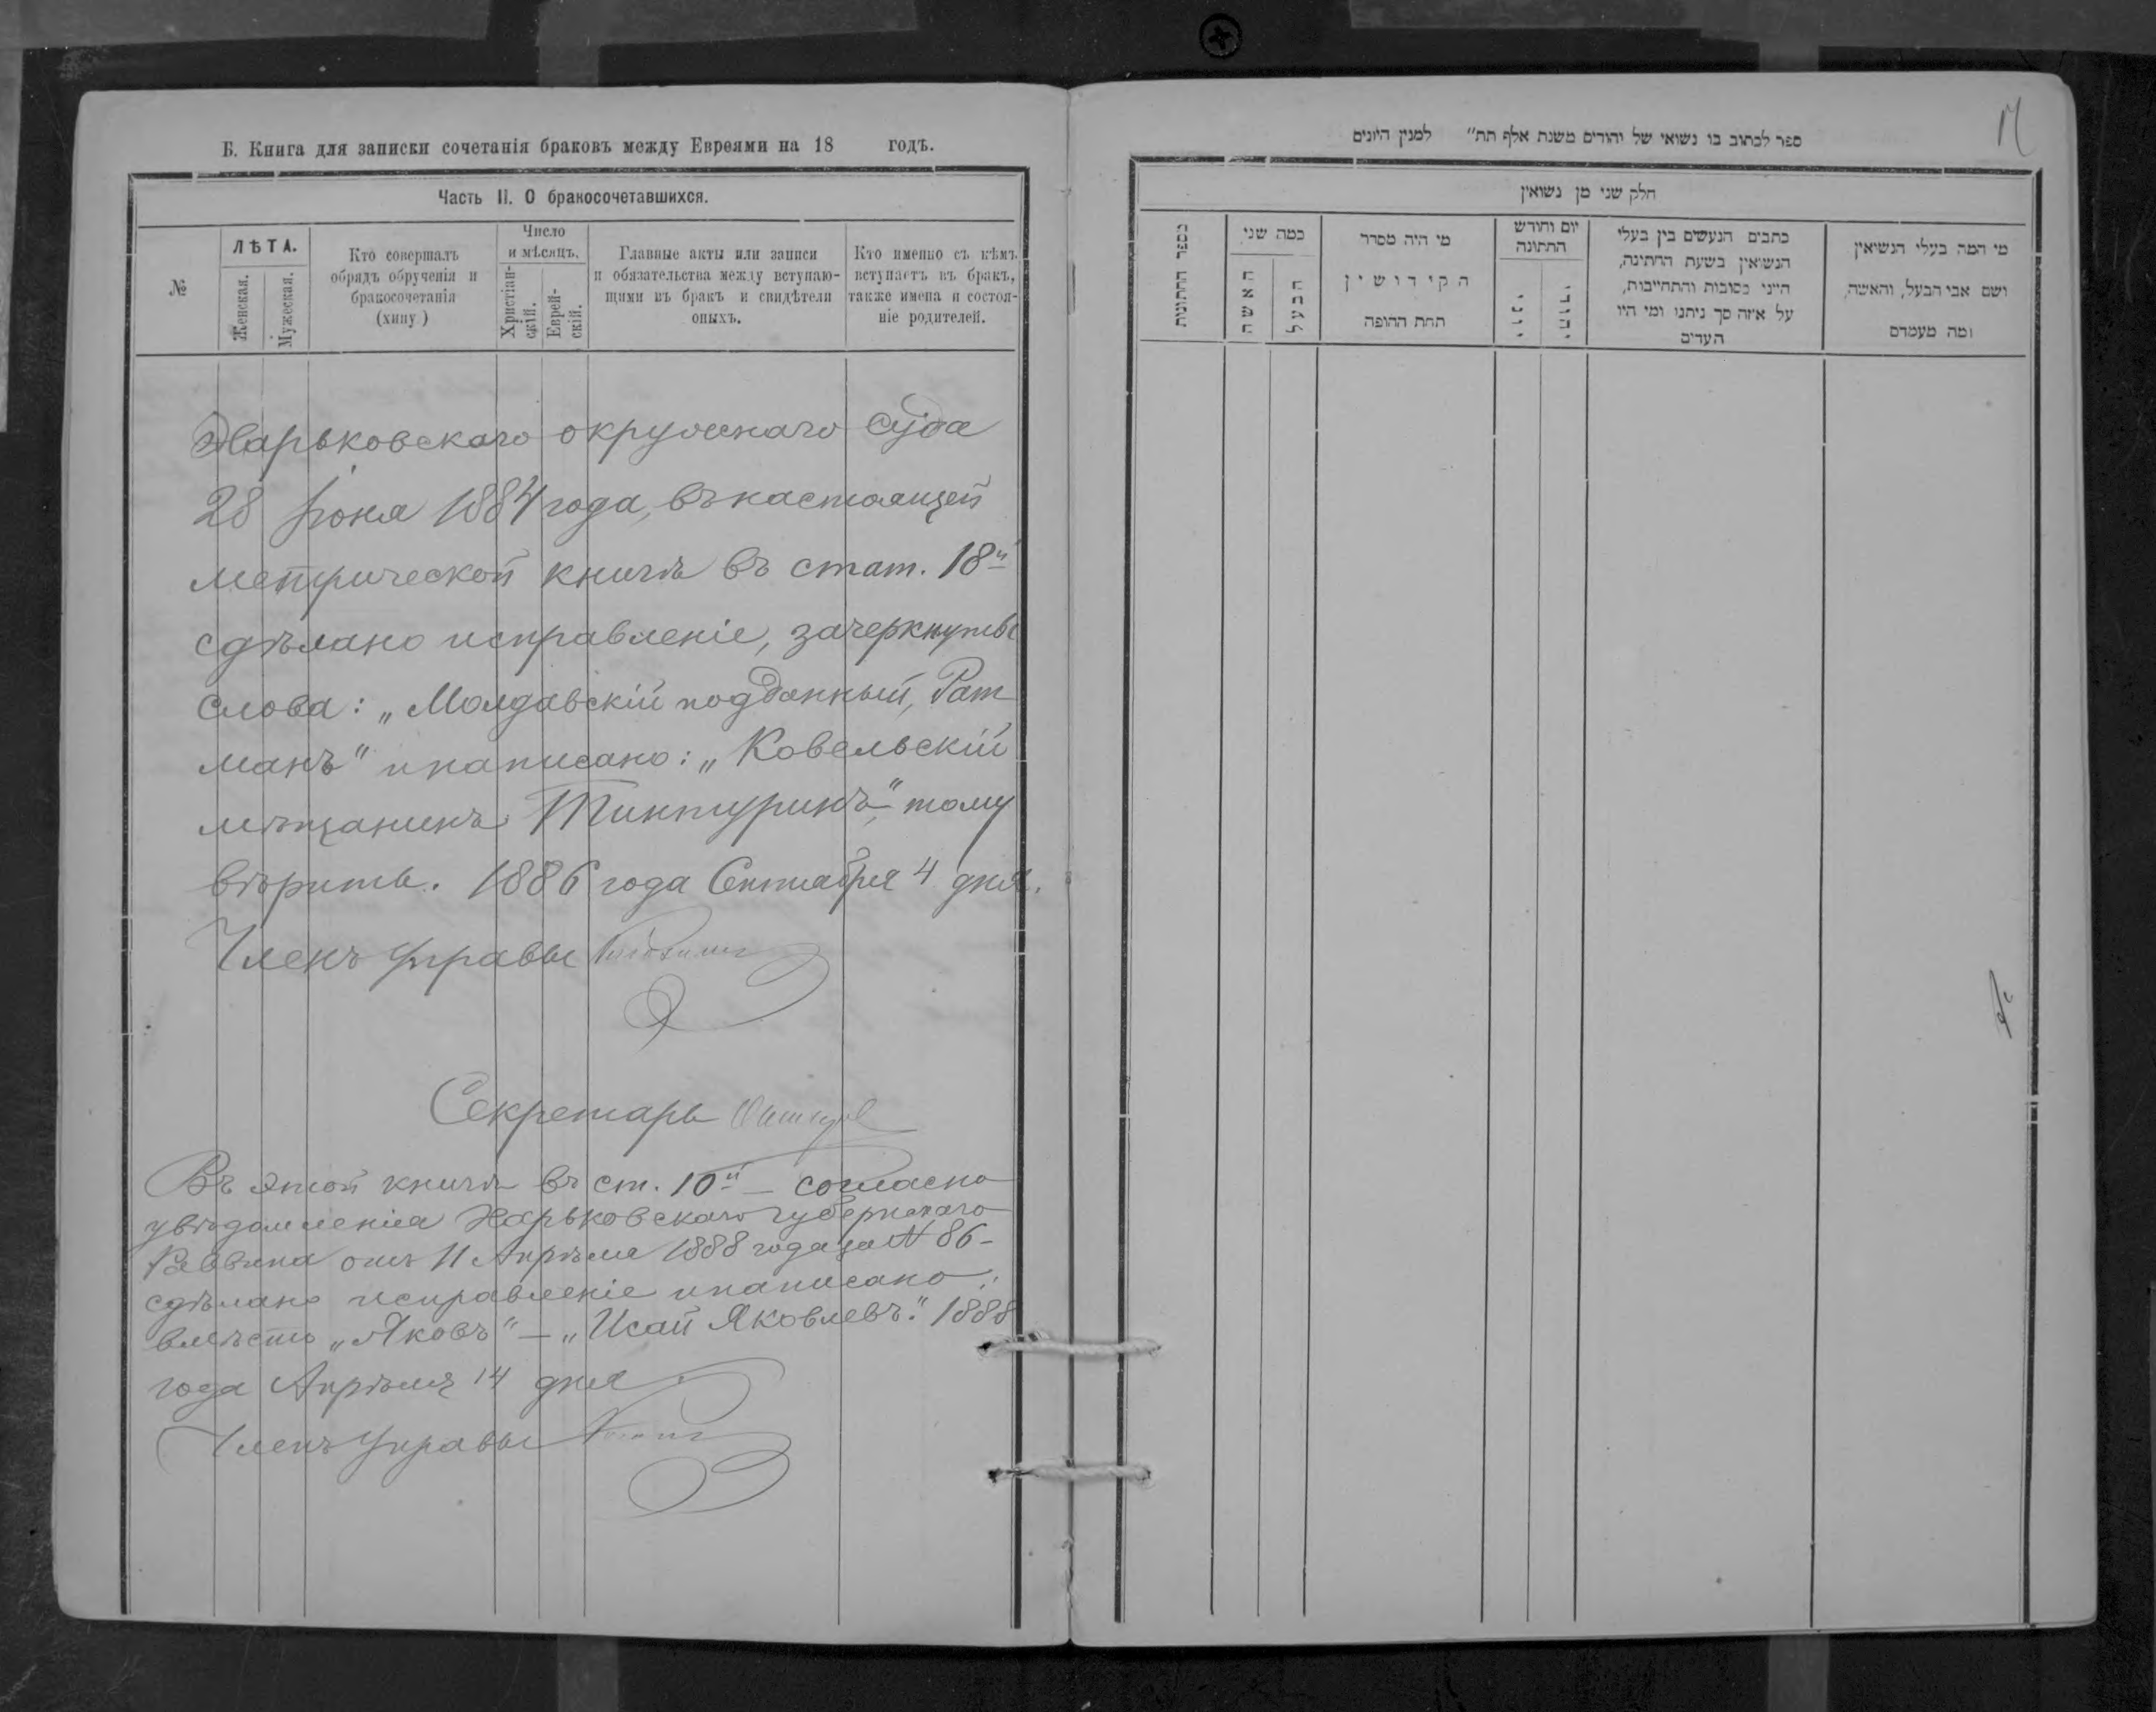 Б. Книга для записки сочетанія браковъ между Евреями на 18 годъ.
Часть II. О бракосочетавшихся.
№
ЛѢТА.
Женская.
Мужеская.
Кто совершалъ
обрядъ обрученія и
бракосочетанія
(хипу)
Число
и мѣсяцъ.
Христіан-
скій.
Еврей-
скій.
Главные акты или записи
и обязательства между вступаю-
щими въ бракъ и свидѣтели
оныхъ.
Кто именно съ кѣмъ
вступаетъ въ бракъ,
также имена и состоя-
ніе родителей.
Харьковскаго окружнаго суда
28 Іюня 1884 года, въ настоящей
метрической книгѣ въ стат. 18й
сдѣлано исправленіе, зачеркнуты
слова: „Молдавскій подданный, Рат
манъ" и написано: „Ковельскій
мѣщанинъ Тинтуринъ", тому
вѣрить. 1886 года Сентября 4 дня.
Членъ Управы
Секретарь
Въ этой книгѣ въ ст. 10й – согласно
увѣдомленія Харьковскаго губернскаго
Раввина отъ 11 Апрѣля 1888 года за № 86 –
сдѣлано исправленіе и написано:
вмѣсто „Яковъ" – „Исай Яковлевъ". 1888
года Апрѣля 14 дня
Членъ Управы
ספר לכתוב בו נשואי של יהודים משנת אלף תת״ למנין היונים
חלק שני מן נשואין
מספר החתונות
כמה שני
האשה
הבעל
מי היה מסדר
הקידושין
תחת ההופה
יום וחודש
החתונה
יוני
יהודי
כתבים הנעשים בין בעלי
הנשואין בשעת החתינה,
היינו כסובות והתחייבות,
על איזה סך ניתנו ומי היו
העדים
מי המה בעלי הנשיאין
ושם אבי הבעל, והאשה,
ומה מעמדם